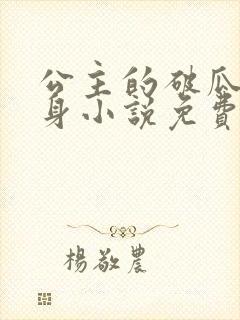 公主的破瓜
身小説免費
楊敬農